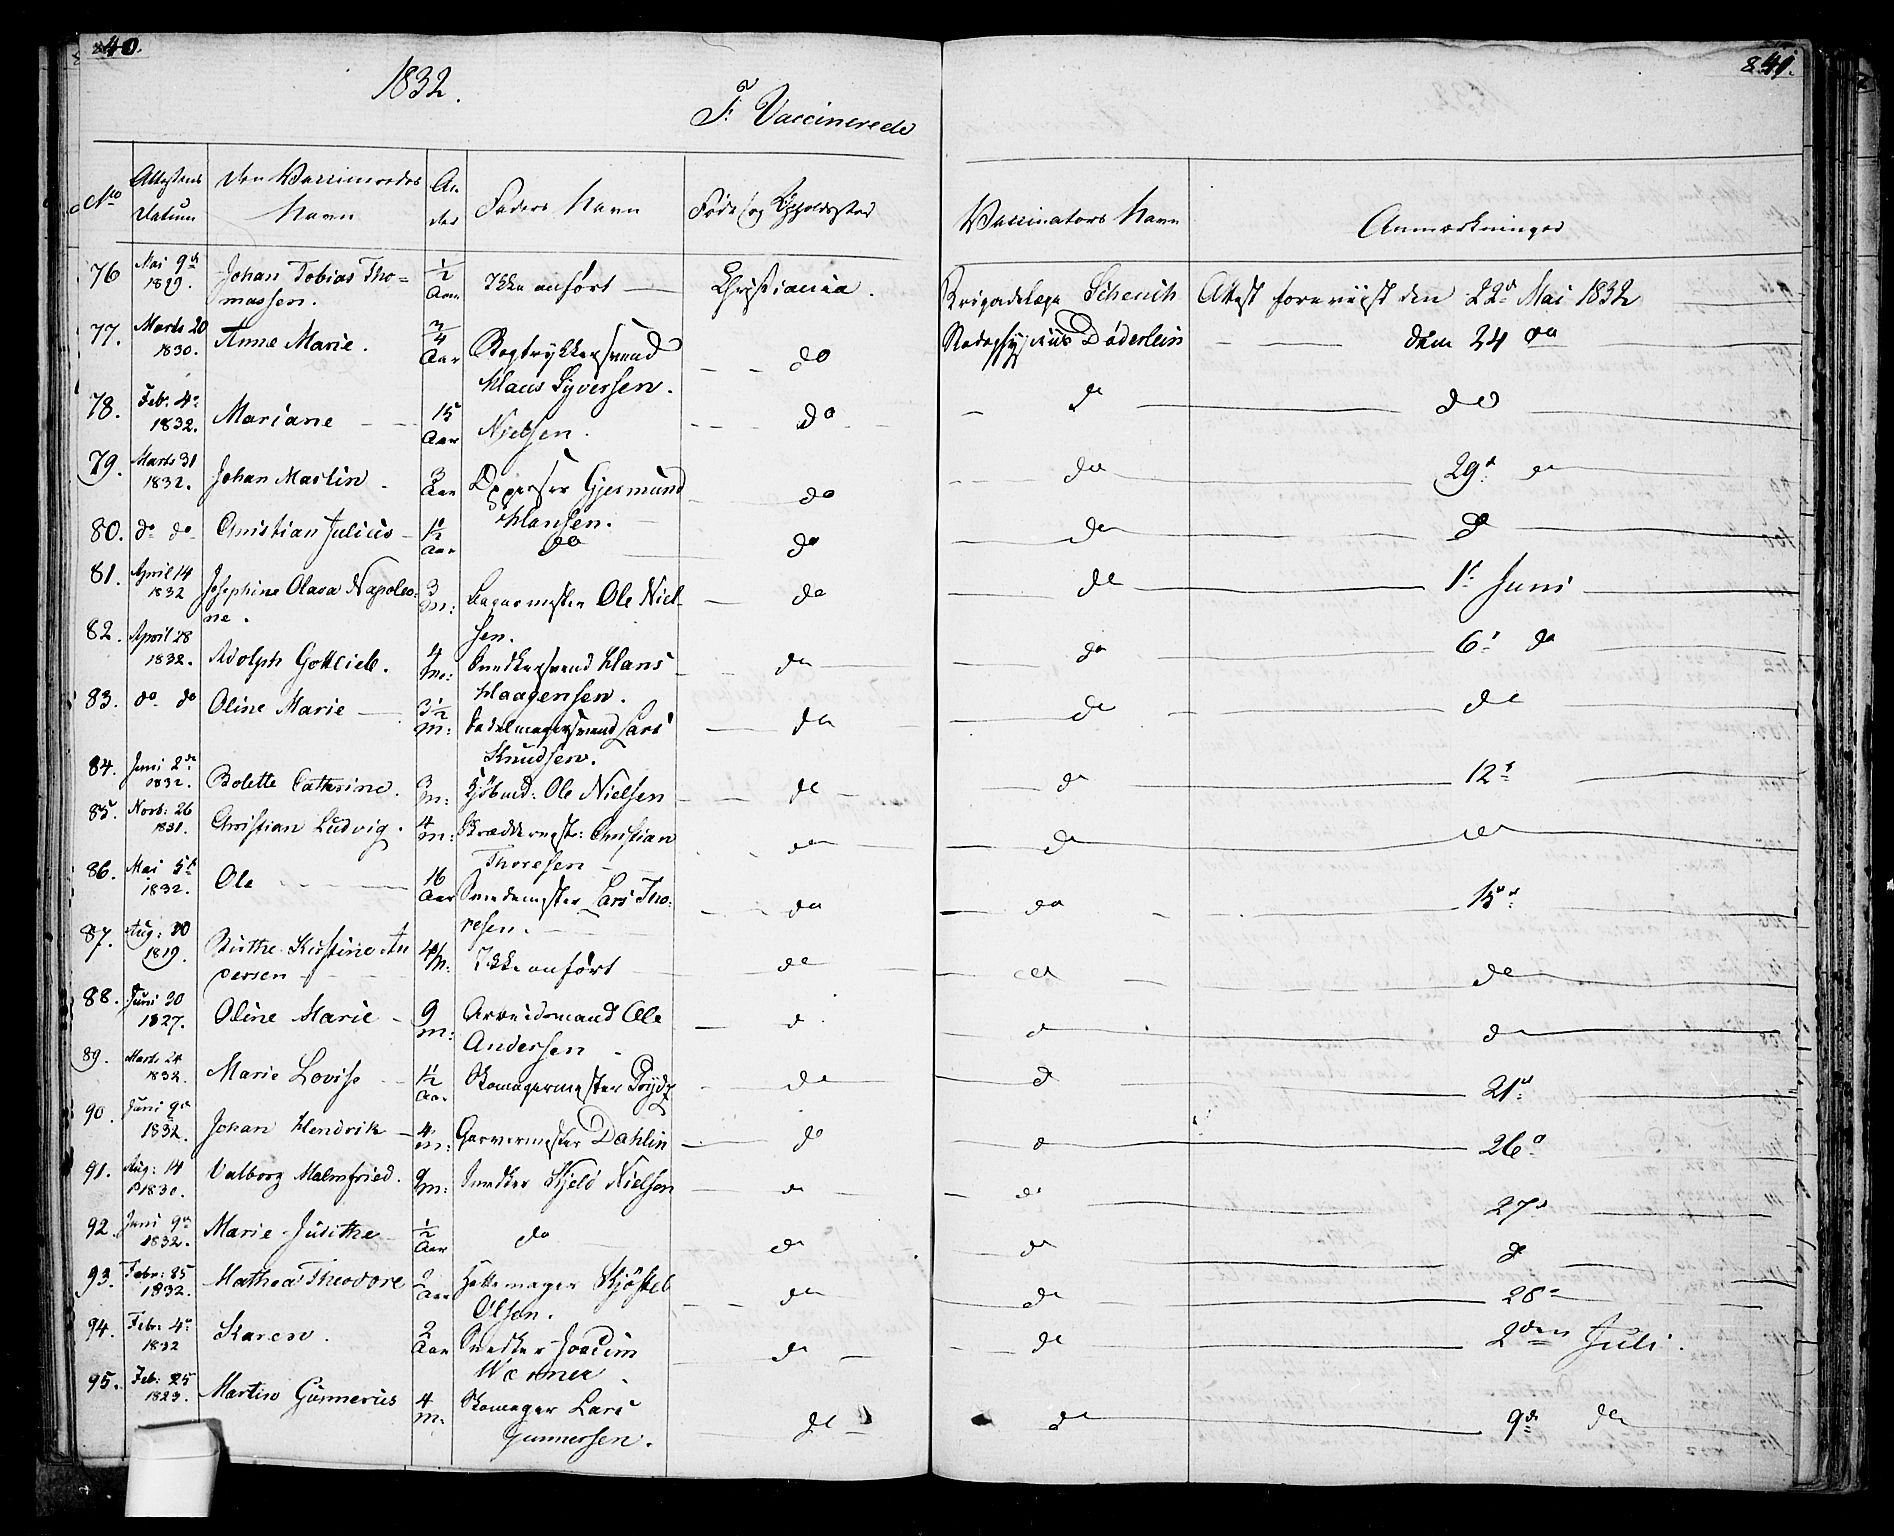 40.
841.
1832.
F. Vaccinerede
No
Attestens Datum
Den Vaccineredes Navn
Alder
Faders Navn
Føde og Opholdssted
Vaccinators Navn
Anmærkninger
76 Mai 9d 1829. Johan Tobias Tho=
massen. 1/2 Aar Ikke anført Christiania. Brigadelæge Schench Attest foreviist den 22d Mai 1832
77. Marts 20 1830. Anne Marie. 3/4 Aar Bogtrykkersvend do Stadsphysicus Døderlein den 24 do
Klaus Syversen.
78. Feb: 4de 1832. Mariane 15 Aar Nielsen. do do do
79. Marts 31 1832. Johan Martin. 3 Aar Opperser Gjermund do do 29d do
Hansen.
80. do do Christian Julius 1 1/2 Aar do do do do
81. April 14 1832 Josephine Olava Napoleo-
ne. 3 m: Garvermester Ole Niel-
sen. do do 1t Juni
82. April 28 1832. Adolph Gottlieb. 4 m: Snedkersvend Hans do do 6t do
Haagensen.
83. do do Oline Marie 3 1/2 m: Sadelmagersvend Lars do do do
Knudsen.
84. Juni 2de 1832. Bolette Cathrine. 3 m: Kjøbmd: Ole Nielsen do do 12t
85. Novb: 26 1831. Christian Ludvig. 4 m: Skræddermst: Christian do do do
Thoresen
86. Mai 5t 1832. Ole 16 Aar Smedemester Lars Tho-
resen. do do 15d
87. Aug: 30 1819. Birthe Kirstine An
dersen 4 M: Ikke anført do do do
88. Juni 30 1827. Oline Marie 9 m: Arbeidsmand Ole do do do
Andersen
89. Marts 24 1832. Marie Lovise 1 1/2 Aar Skomagermester do do 21d
90. Juni 9de 1832. Johan Hendrik 4 m: Garvermester Dahlin do do 26d
91. Aug: 14 1830. Valborg Malmfried. 9 m: Snedker Kjeld Nielsen do do 27d
92. Juni 9de 1832. Marie Judithe 1/2 Aar do do do do
93. Febr: 25 1832. Mathea Theodore 2 Aar Hattemager do do 28d
Olsen.
94. Feb: 4de 1832 Karen. 2 Aar Snedker Joacim do do 2den Juli.
Werner
95. Feb: 25 1823. Martin Gunnerius 4 m: Skomager Lars do do 9de do
Gunnersen.